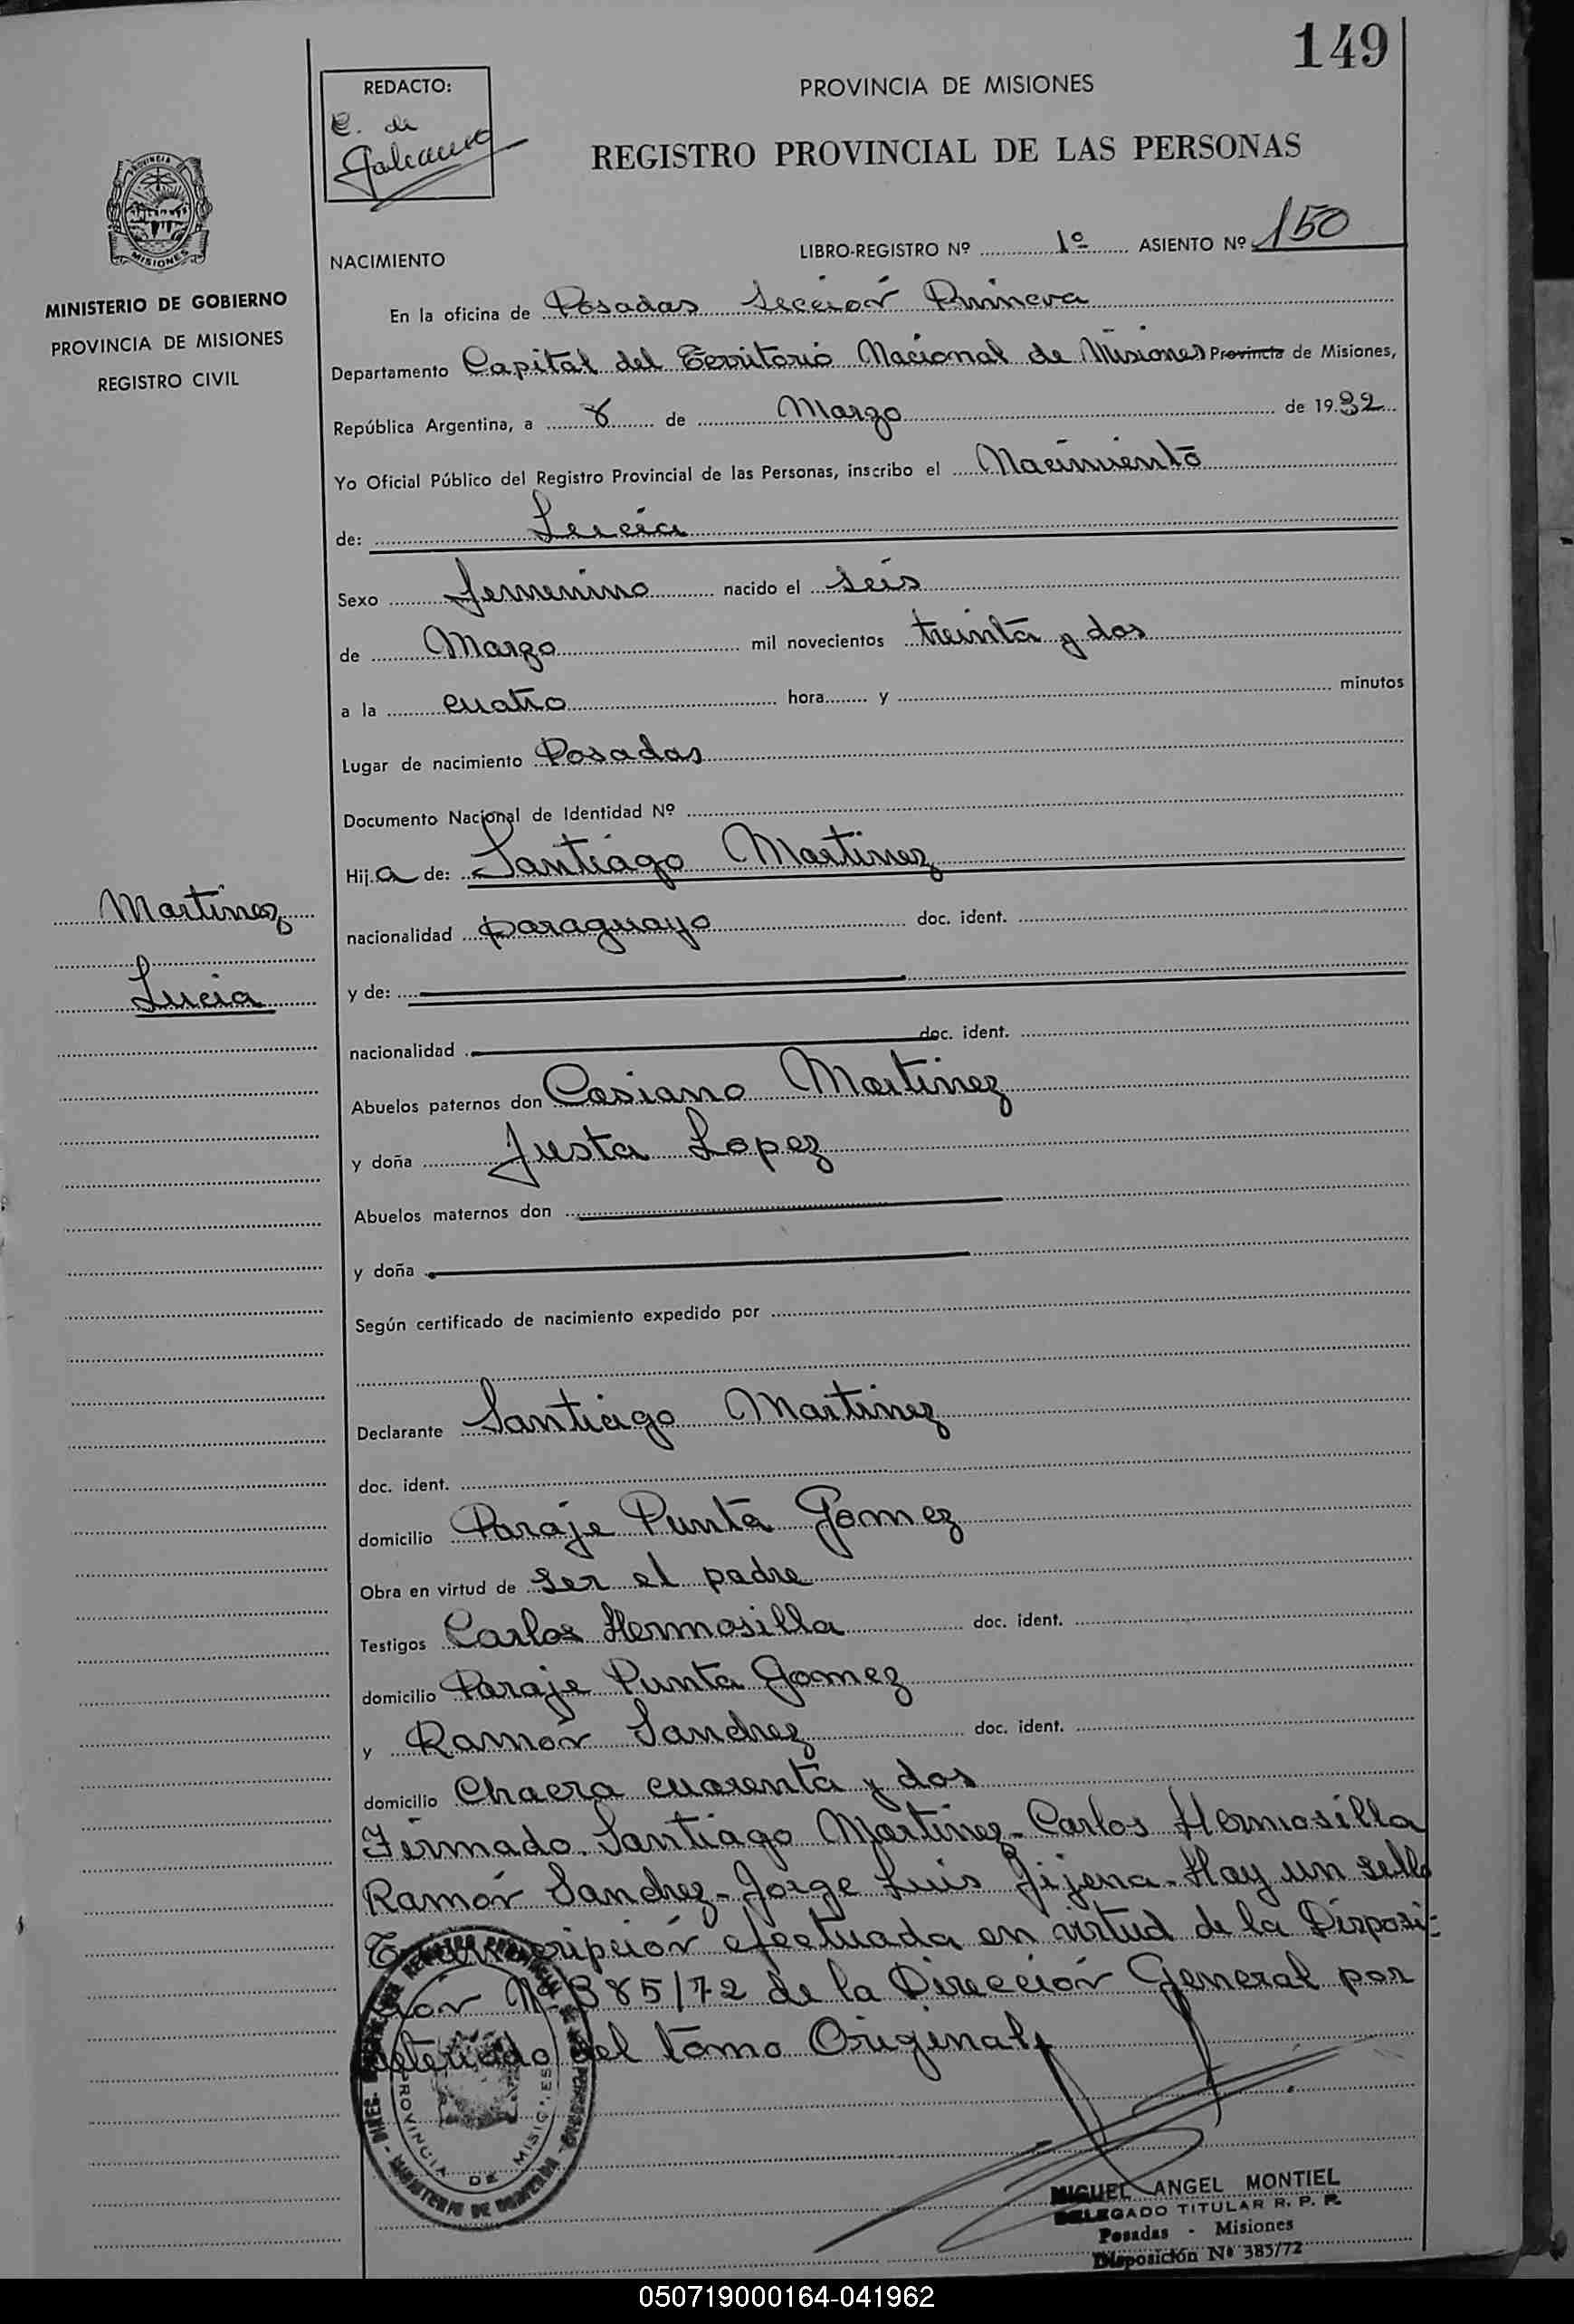 149
REDACTO:
C. de
Galeano
PROVINCIA DE MISIONES
REGISTRO PROVINCIAL DE LAS PERSONAS
PROVINCIA
MISIONES
MINISTERIO DE GOBIERNO
PROVINCIA DE MISIONES
REGISTRO CIVIL
NACIMIENTO
LIBRO-REGISTRO Nº 1º ASIENTO Nº 150
En la oficina de Posadas Sección Primera
Departamento Capital del Territorio Nacional de Misiones Provincia de Misiones,
República Argentina, a 8 de Marzo de 1932
Yo Oficial Público del Registro Provincial de las Personas, inscribo el Nacimiento
de: Lucia
Sexo femenino nacido el seis
de Marzo mil novecientos treinta y dos
a la cuatro hora y minutos
Lugar de nacimiento Posadas
Documento Nacional de Identidad Nº
Hija de: Santiago Martinez
Martinez
nacionalidad paraguayo doc. ident.
Lucia
y de:
nacionalidad doc. ident.
Abuelos paternos don Casiano Martinez
y doña Justa Lopez
Abuelos maternos don
y doña
Según certificado de nacimiento expedido por
Declarante Santiago Martinez
doc. ident.
domicilio Paraje Punta Gomez
Obra en virtud de ser el padre
Testigos Carlos Hermosilla doc. ident.
domicilio Paraje Punta Gomez
y Ramón Sanchez doc. ident.
domicilio Chacra cuarenta y dos
Firmado. Santiago Martinez - Carlos Hermosilla
Ramón Sanchez - Jorge Luis Jijena - Hay un sello
Transcripción efectuada en virtud de la Disposi-
ción Nº 385/72 de la Dirección General por
deteriodo del tomo Original
PROVINCIA DE MISIONES
MIGUEL ANGEL MONTIEL
DELEGADO TITULAR R. P. P.
Posadas - Misiones
Disposición Nº 385/72
050719000164-041962